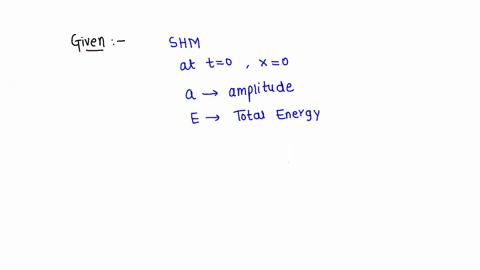 Given :- SHM
at t=0 , x=0
a → amplitude
E → Total Energy